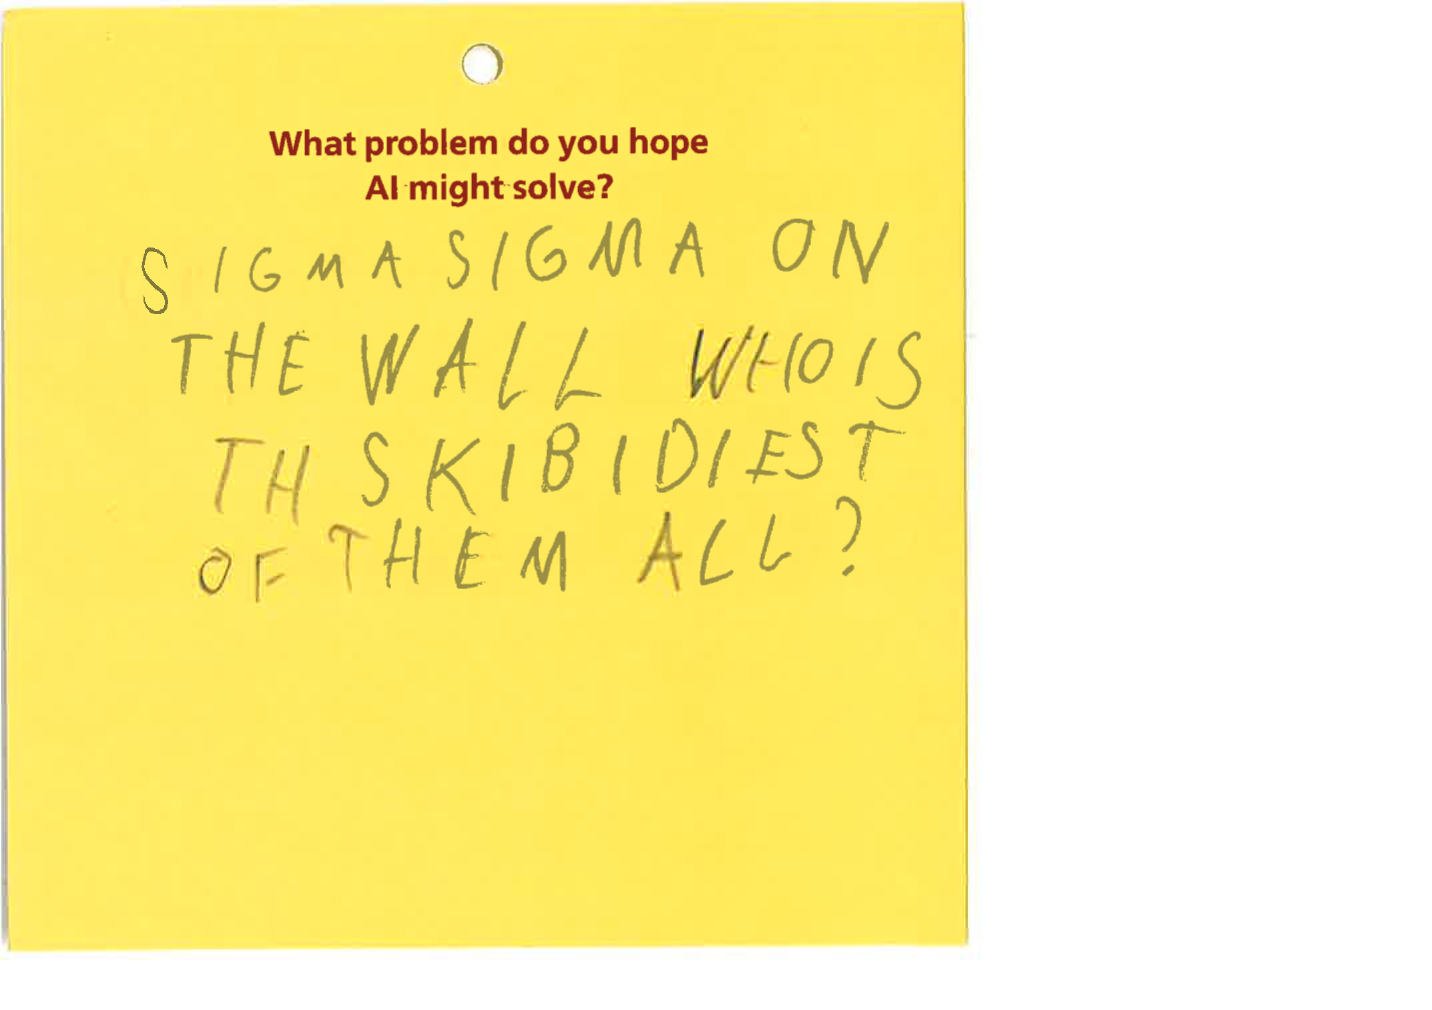 What problem do you hope
AI might solve?
SIGMA SIGMA ON
THE WALL WHO IS
TH SKIBIDIEST
OF THEM ALL?